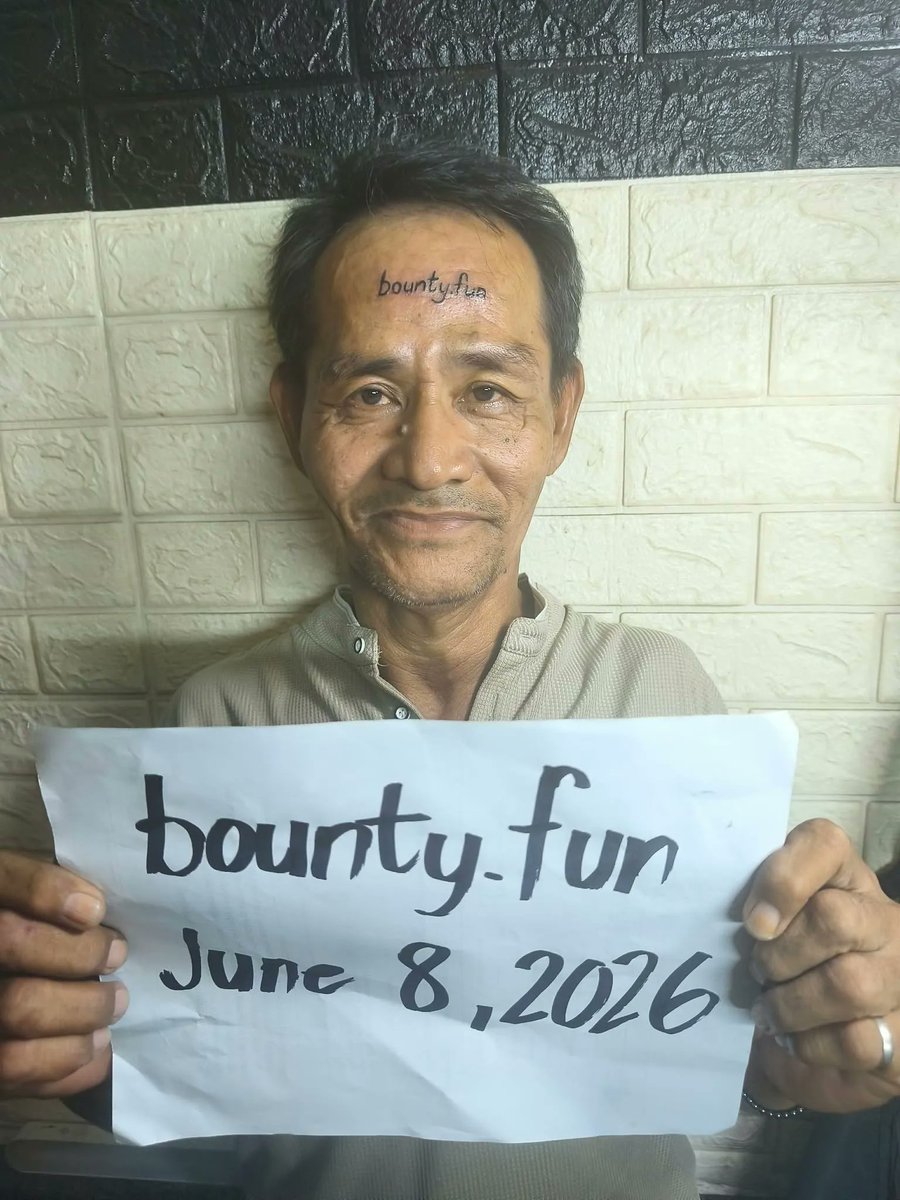 bounty.fun
bounty.fun
June 8, 2026